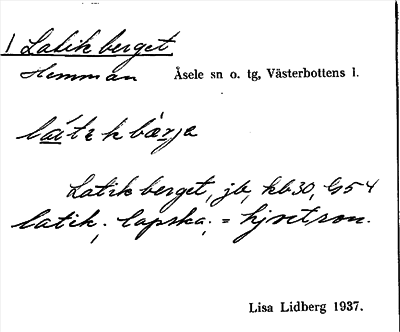 1 Latikberget
Hemman Åsele sn o. tg, Västerbottens l.
Latikberget, jb, kb30, G54
latik, lapska, = hjortron.
Lisa Lidberg 1937.